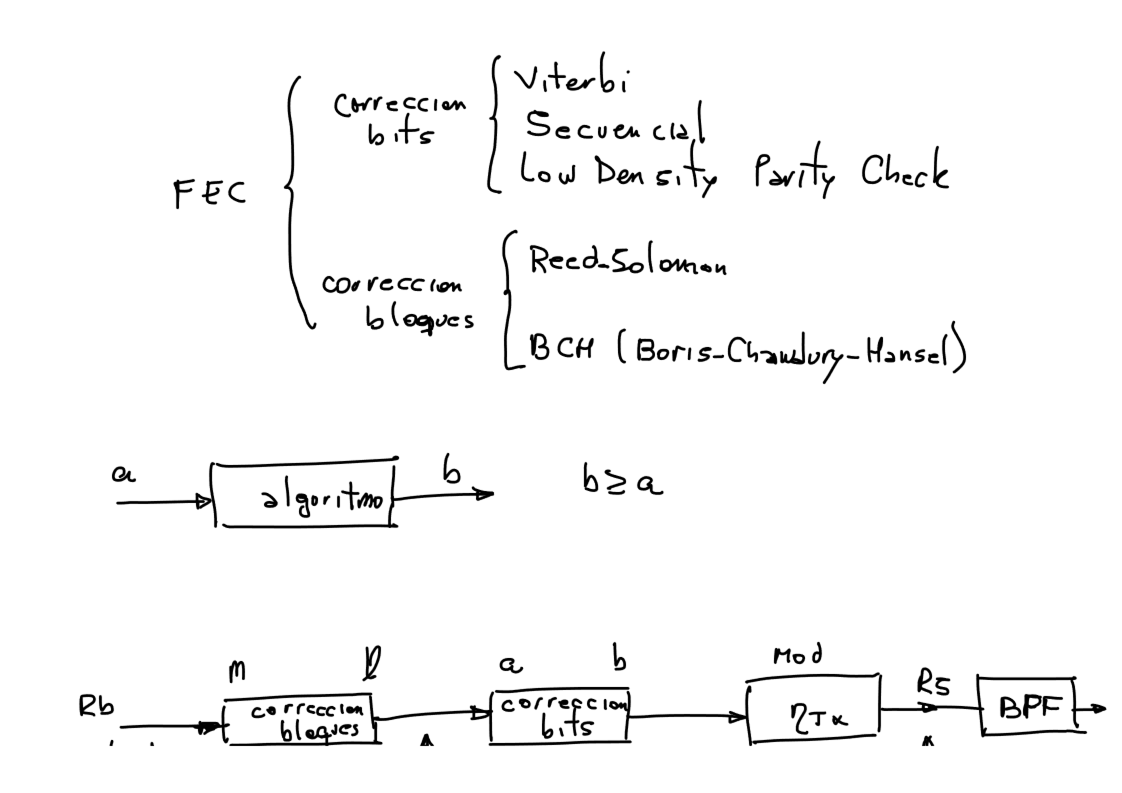 FEC
correccion
bits
Viterbi
Secuencial
Low Density Parity Check
correccion
bloques
Reed-Solomon
BCH (Boris-Chawdury-Hansel)
a
algoritmo
b
b ≥ a
m
l
a
b
Mod
Rb
correccion
bloques
correccion
bits
ηTx
Rs
BPF